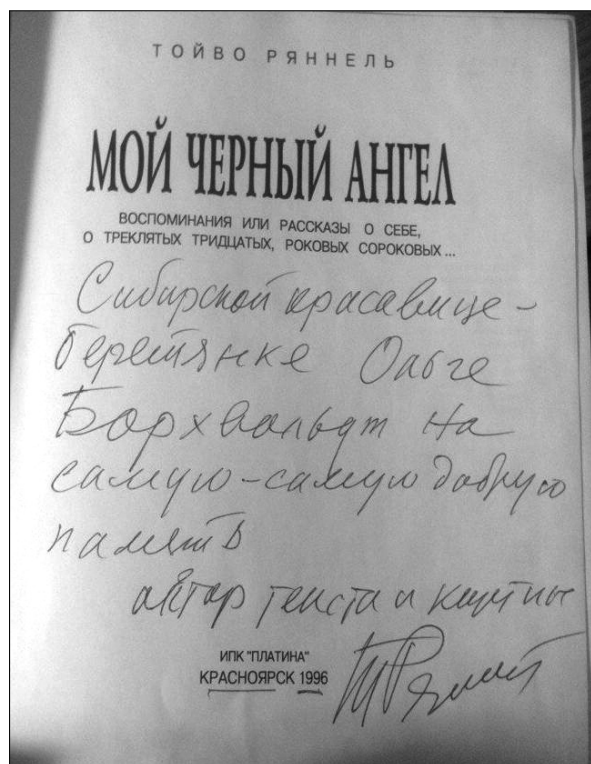 ТОЙВО РЯННЕЛЬ
МОЙ ЧЕРНЫЙ АНГЕЛ
ВОСПОМИНАНИЯ ИЛИ РАССКАЗЫ О СЕБЕ,
О ТРЕКЛЯТЫХ ТРИДЦАТЫХ, РОКОВЫХ СОРОКОВЫХ...
Сибирской красавице-
Ольге
Борхвальдт на
самую-самую добрую
память
автор текста и картин
ИПК "ПЛАТИНА"
КРАСНОЯРСК 1996